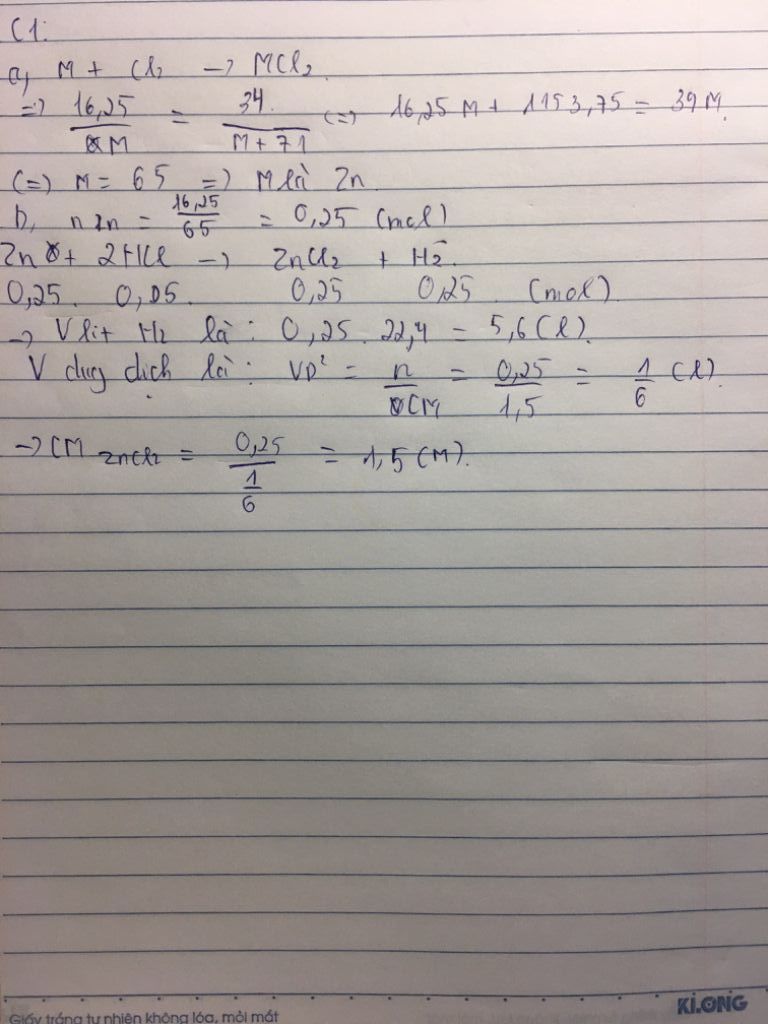 C1:
a, M + Cl₂ → MCl₂.
=> 16,25/M = 34./M + 71 <=> 16,25 M + 1153,75 = 34 M.
<=> M = 65 => M là Zn
b, n Zn = 16,25/65 = 0,25 (mol)
Zn + 2HCl → ZnCl₂ + H₂.
0,25. 0,05. 0,25 0,25 (mol)
→ V lít H₂ là: 0,25 . 22,4 = 5,6 (l).
V dug dịch là: VD² = n/CM = 0,25/1,5 = 1/6 (l).
→ CM ZnCl₂ = 0,25/1/6 = 1,5 (M).
Giấy trắng tự nhiên không lóa, mỏi mắt
KLONG